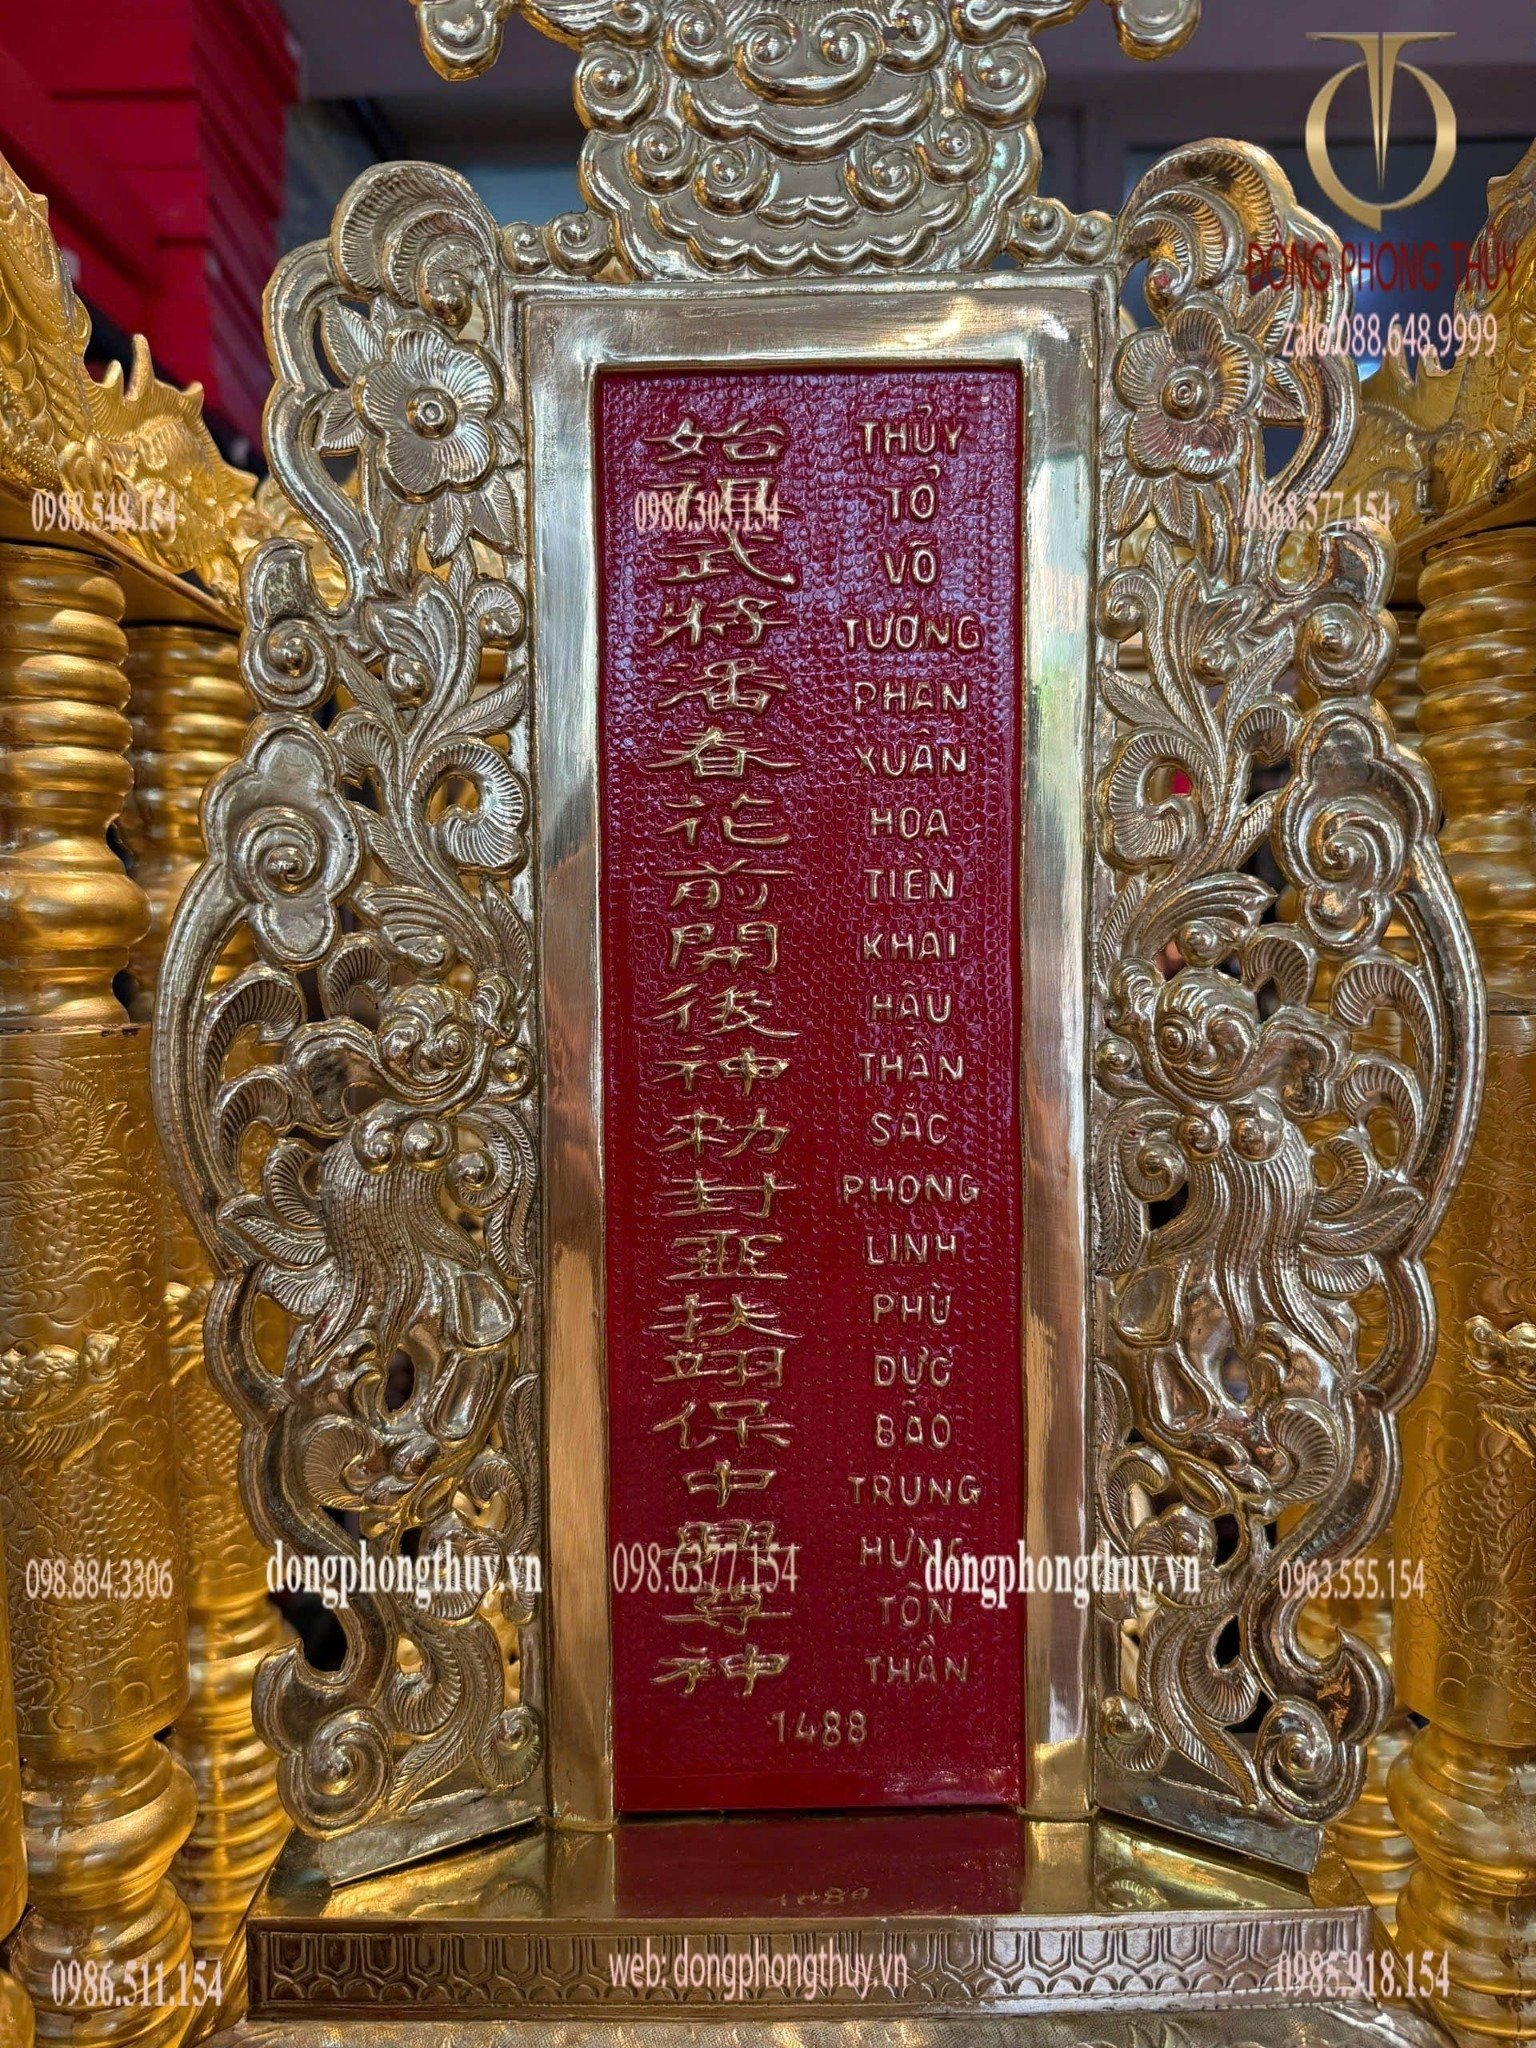 ĐỒNG PHONG THỦY
zalo:088.648.9999
始
祖
武
將
潘
春
花
前
開
後
神
勑
封
亚
扶
翊
保
中
興
尊
神
THỦY
TỔ
VÕ
TƯỚNG
PHAN
XUÂN
HOA
TIỀN
KHAI
HẬU
THẦN
SẮC
PHONG
LINH
PHÙ
DỰC
BẢO
TRUNG
HƯNG
TÔN
THẦN
1488
0988.548.154
0980.303.154
0868.577.154
098.884.3306
dongphongthuy.vn
098.6377.154
dongphongthuy.vn
0963.555.154
0986.511.154
web: dongphongthuy.vn
0985.918.154